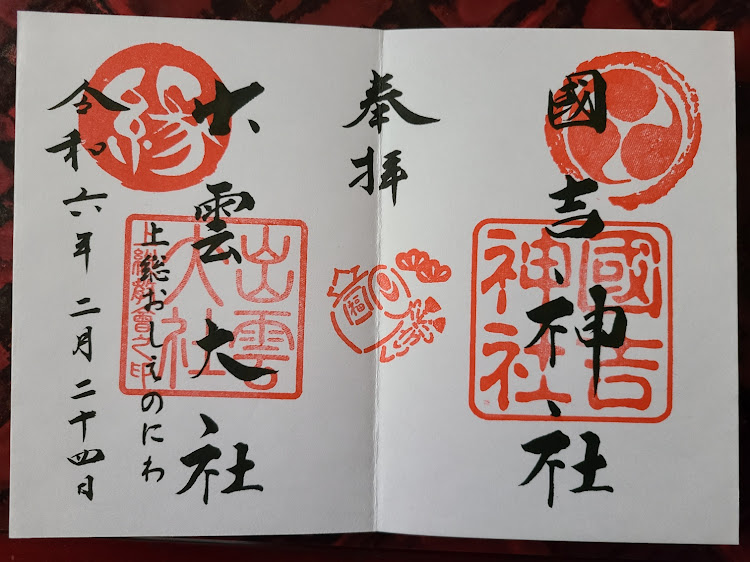 國吉神社
國吉
神社
奉拝
福
出雲大社
縁
出雲
大社
上総教會之印
上総おしえのにわ
令和六年二月二十四日